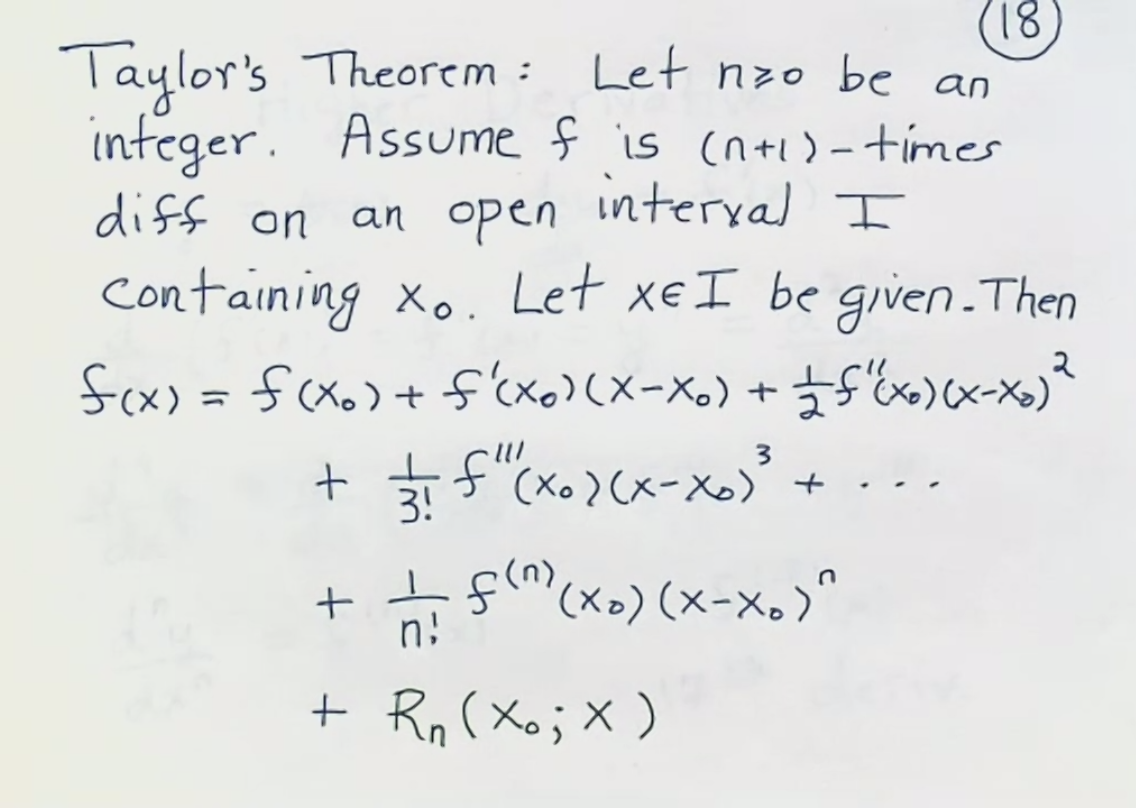 18
Taylor's Theorem: Let n≥0 be an
integer. Assume f is (n+1)-times
diff on an open interval I
containing x₀. Let x∈I be given. Then
f(x) = f(x₀) + f'(x₀)(x-x₀) + 1/2 f''(x₀)(x-x₀)²
+ 1/3! f'''(x₀)(x-x₀)³ + ...
+ 1/n! f⁽ⁿ⁾(x₀)(x-x₀)ⁿ
+ Rₙ(x₀; x)